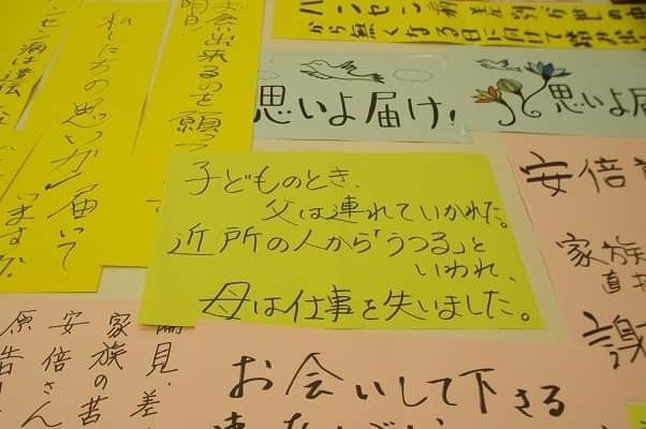 ハンセン病差別が世の中
から無くなる日に向けて
お会い出来るのを願って
明日
私たちの思いが届いて
いますか
ンセン病は遺伝
思いよ届け!
思いよ届
子どものとき、
父は連れていかれた。
近所の人から「うつる」と
いわれ、
母は仕事を失いました。
安倍
家族
直接
謝
偏見、差
家族の苦
安倍さん
原告
お会いして下さる